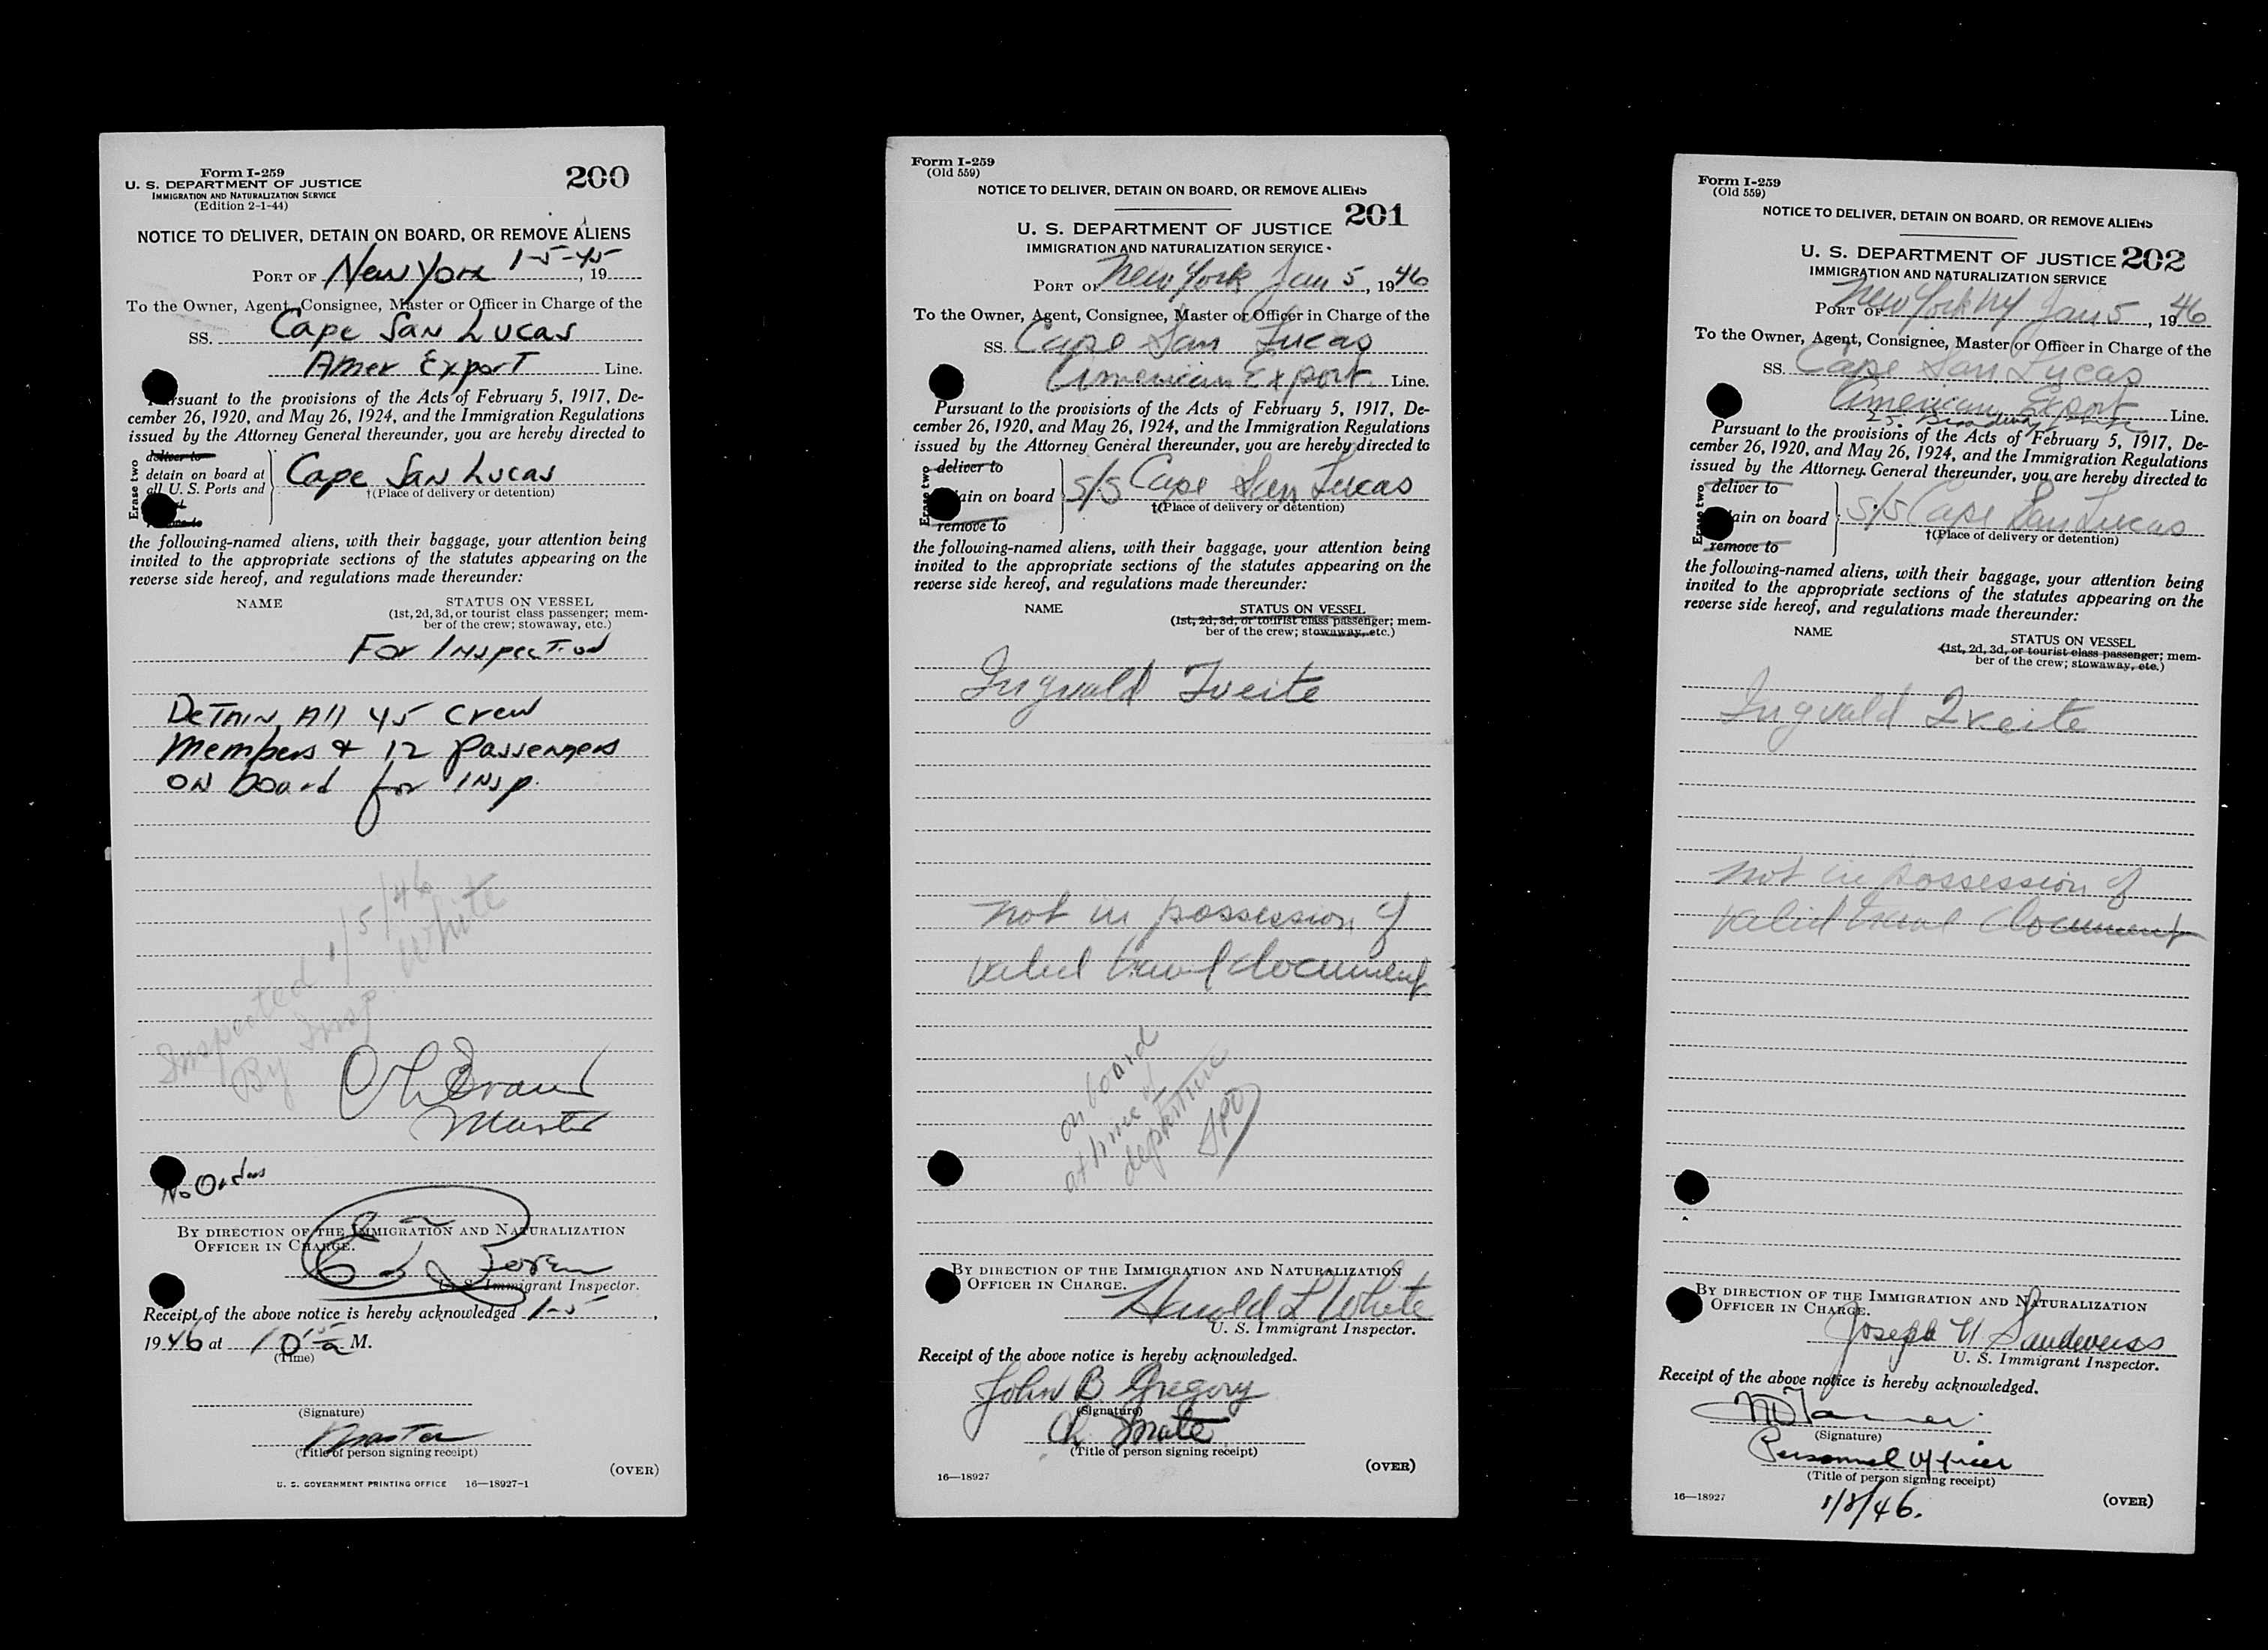 Form I-259
U. S. DEPARTMENT OF JUSTICE
IMMIGRATION AND NATURALIZATION SERVICE
(Edition 2-1-44)
200
NOTICE TO DELIVER, DETAIN ON BOARD, OR REMOVE ALIENS
PORT OF New York 1-5-45, 19
To the Owner, Agent, Consignee, Master or Officer in Charge of the
SS. Cape San Lucas
Amer Export Line.
Pursuant to the provisions of the Acts of February 5, 1917, De-
cember 26, 1920, and May 26, 1924, and the Immigration Regulations
issued by the Attorney General thereunder, you are hereby directed to
Erase two
deliver to
detain on board at
all U. S. Ports and
Cape San Lucas
†(Place of delivery or detention)
the following-named aliens, with their baggage, your attention being
invited to the appropriate sections of the statutes appearing on the
reverse side hereof, and regulations made thereunder:
NAME
STATUS ON VESSEL
(1st, 2d, 3d, or tourist class passenger; mem-
ber of the crew; stowaway, etc.)
For Inspection
Detain All 45 Crew
Members & 12 Passengers
on board for Insp.
Inspected 1/5/46
By Insp. White
Master
No Orders
BY DIRECTION OF THE IMMIGRATION AND NATURALIZATION
OFFICER IN CHARGE.
U. S. Immigrant Inspector.
Receipt of the above notice is hereby acknowledged 1-5,
1946 at 10 15 a M.
(Time)
(Signature)
Master
(Title of person signing receipt)
(OVER)
U. S. GOVERNMENT PRINTING OFFICE 16—18927-1
Form I-259
(Old 559)
NOTICE TO DELIVER, DETAIN ON BOARD, OR REMOVE ALIENS
201
U. S. DEPARTMENT OF JUSTICE
IMMIGRATION AND NATURALIZATION SERVICE
PORT OF New York Jan 5, 1946
To the Owner, Agent, Consignee, Master or Officer in Charge of the
SS. Cape San Lucas
American Export Line.
Pursuant to the provisions of the Acts of February 5, 1917, De-
cember 26, 1920, and May 26, 1924, and the Immigration Regulations
issued by the Attorney General thereunder, you are hereby directed to
Erase two
deliver to
detain on board
remove to
S/S Cape San Lucas
†(Place of delivery or detention)
the following-named aliens, with their baggage, your attention being
invited to the appropriate sections of the statutes appearing on the
reverse side hereof, and regulations made thereunder:
NAME
STATUS ON VESSEL
(1st, 2d, 3d, or tourist class passenger; mem-
ber of the crew; stowaway, etc.)
Ingvald Tveite
not in possession of
valid travel document
on board
at time of
departure
BY DIRECTION OF THE IMMIGRATION AND NATURALIZATION
OFFICER IN CHARGE.
Harold L White
U. S. Immigrant Inspector.
Receipt of the above notice is hereby acknowledged.
John B Gregory
(Signature)
Ch Mate
(Title of person signing receipt)
16—18927
(OVER)
Form I-259
(Old 559)
NOTICE TO DELIVER, DETAIN ON BOARD, OR REMOVE ALIENS
U. S. DEPARTMENT OF JUSTICE 202
IMMIGRATION AND NATURALIZATION SERVICE
PORT OF New York NY Jan 5, 1946
To the Owner, Agent, Consignee, Master or Officer in Charge of the
SS. Cape San Lucas
American Export Line.
25 Broadway
Pursuant to the provisions of the Acts of February 5, 1917, De-
cember 26, 1920, and May 26, 1924, and the Immigration Regulations
issued by the Attorney General thereunder, you are hereby directed to
Erase two
deliver to
detain on board
remove to
S/S Cape San Lucas
†(Place of delivery or detention)
the following-named aliens, with their baggage, your attention being
invited to the appropriate sections of the statutes appearing on the
reverse side hereof, and regulations made thereunder:
NAME
STATUS ON VESSEL
(1st, 2d, 3d, or tourist class passenger; mem-
ber of the crew; stowaway, etc.)
Ingvald Tveite
not in possession of
valid travel document
BY DIRECTION OF THE IMMIGRATION AND NATURALIZATION
OFFICER IN CHARGE.
Joseph Sandweiss
U. S. Immigrant Inspector.
Receipt of the above notice is hereby acknowledged.
(Signature)
Personnel Officer
(Title of person signing receipt)
1/8/46.
16—18927
(OVER)